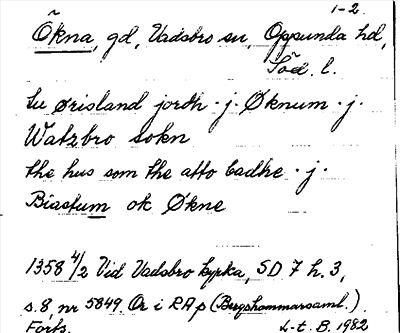 1-2.
Ökna, gd, Vadsbro sn, Oppunda hd,
Söd. l.
tu ørisland jordh · j · Øknum · j ·
Watzbro sokn
the hus som the atto badhe · j ·
Biastum ok Økne
1358 4/2 Vid Vadsbro kyrka, SD 7 h. 3,
s. 8, nr 5849. Or i RAp (Bergshammarsaml.).
Forts. L-t. B. 1982